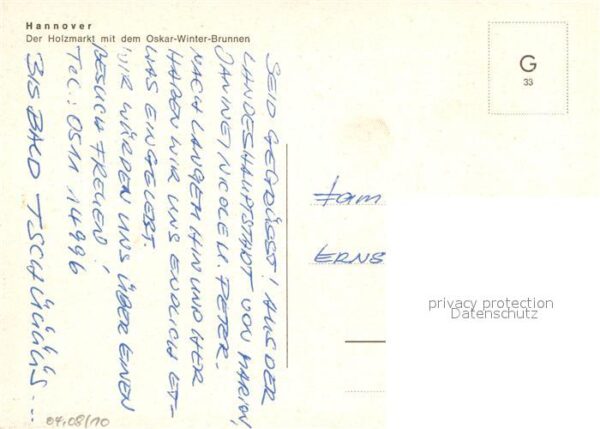 Hannover
Der Holzmarkt mit dem Oskar-Winter-Brunnen
SEID GEGRÜSST! AUS DER
LANDESHAUPTSTADT VON MARION,
JANINE, NICOLE U. PETER.
NACH LANGEM HIN UND HER
HABEN WIR UNS ENDLICH ET-
WAS EINGELEBT.
WIR WÜRDEN UNS ÜBER EINEN
BESUCH FREUEN!
TEL: 0511 14996
BIS BALD TSCHÜÜÜÜS...
04.08/10
G
33
Fam
ERNS
privacy protection
Datenschutz